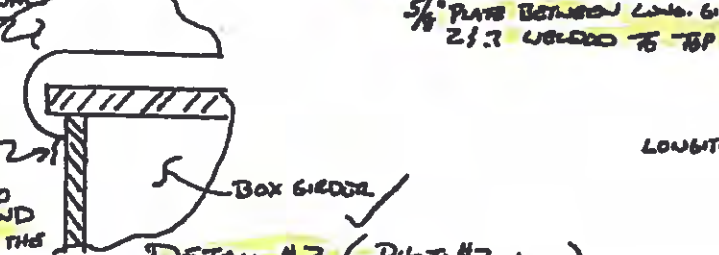 5/8" PLATE BETWEEN LONG. GI
2 & 3 WELDED TO TOP
LONGIT
BOX GIRDER
ND
THE
DETAIL #3